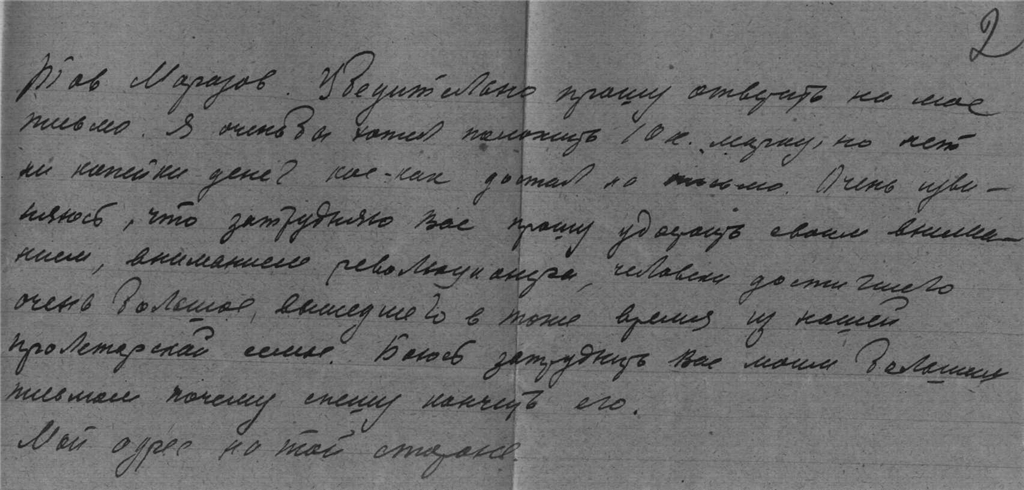 2
Тов Марозов. Убедительно прошу ответать на мое
письмо. Я очень бы хотел положить 10 к. марку, но нет
ни капейки денег кое-как достал на письмо. Очень изви-
няюсь, что затрудняю вас прошу удостоить своим внима-
нием, вниманием революцианера, человека достигшего
очень большое, вышедшего в тоже время из нашей
пролетарской семье. Боюсь затруднить вас моим большим
письмом почему спешу кончить его.
Мой адрес на той стороне